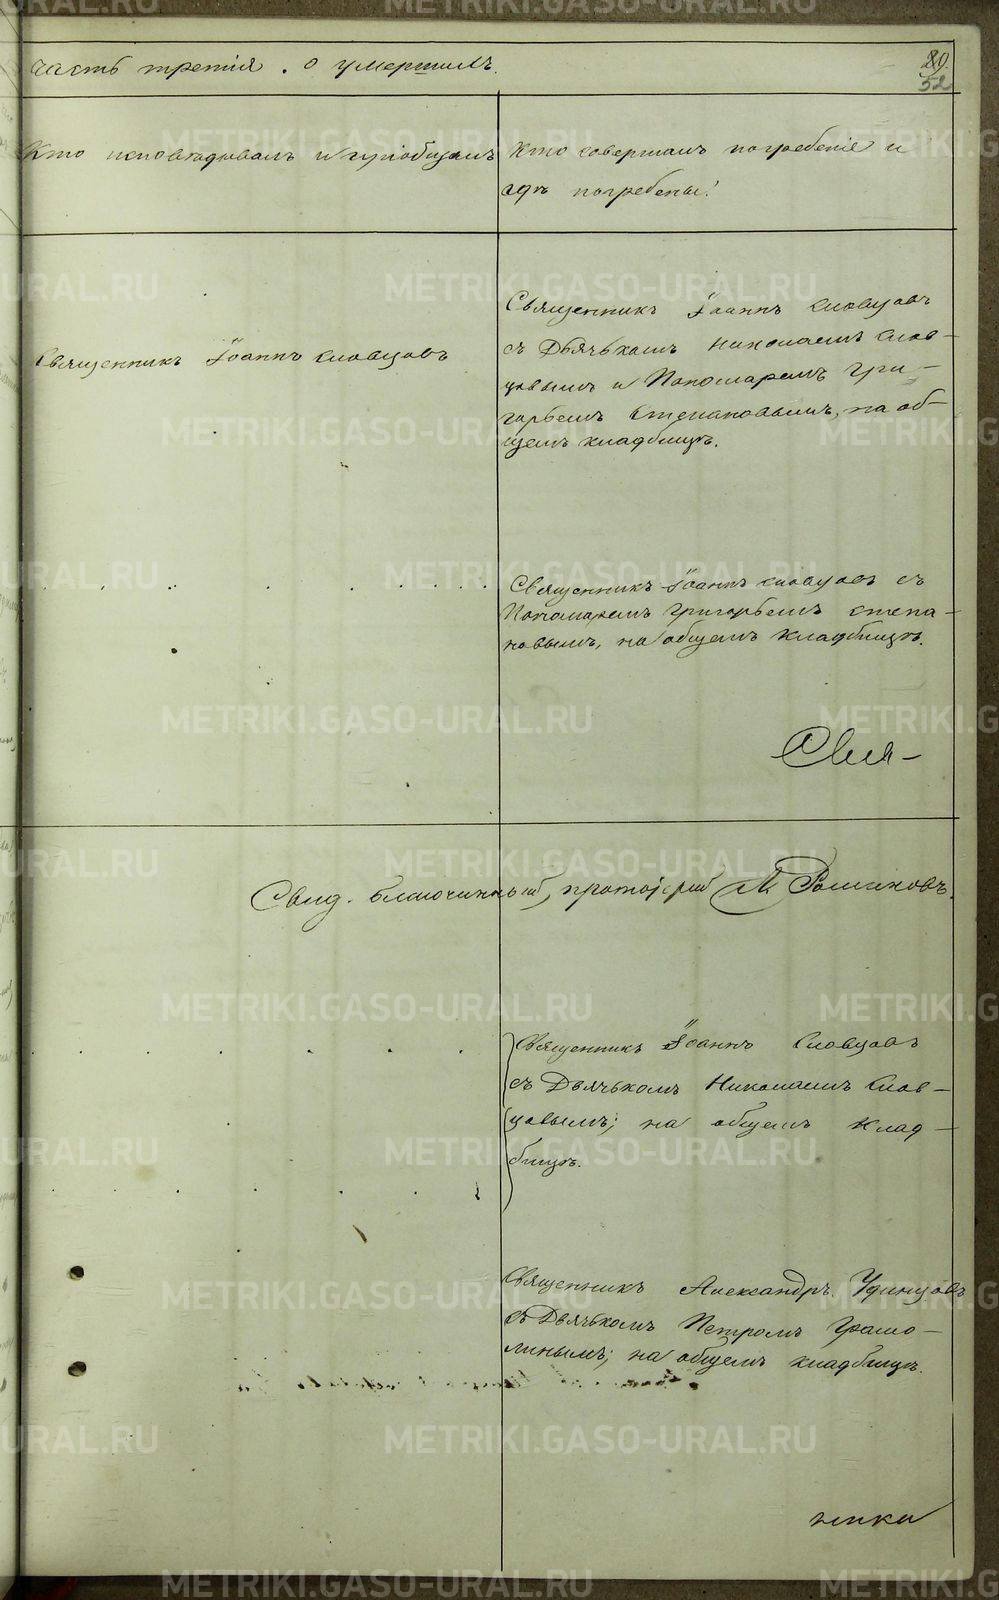 часть третія. о умершихъ.
29.
52
Кто исповѣдывалъ и пріобщалъ
Кто совершалъ погребеніе и
гдѣ погребены?
Священникъ Іоаннъ Словцовъ
Священникъ Іоаннъ Словцовъ
съ Дьячькомъ Николаемъ Слов-
цовымъ и Пономаремъ Гри-
горьемъ Степановымъ, на об-
щемъ кладбищѣ.
Священникъ Іоаннъ Словцовъ съ
Пономаремъ Григорьемъ Степа-
новымъ, на общемъ кладбищѣ.
Свя-
Свид. благочинный, протоіерей М. Ромиковъ.
Священникъ Іоаннъ Словцовъ
съ Дьячькомъ Николаемъ Слов-
цовымъ; на общемъ клад-
бищѣ.
Священникъ Александръ Удинцовъ
съ Дьячькомъ Петромъ Грамо-
линымъ; на общемъ кладбищѣ.
ники
METRIKI.GASO-URAL.RU